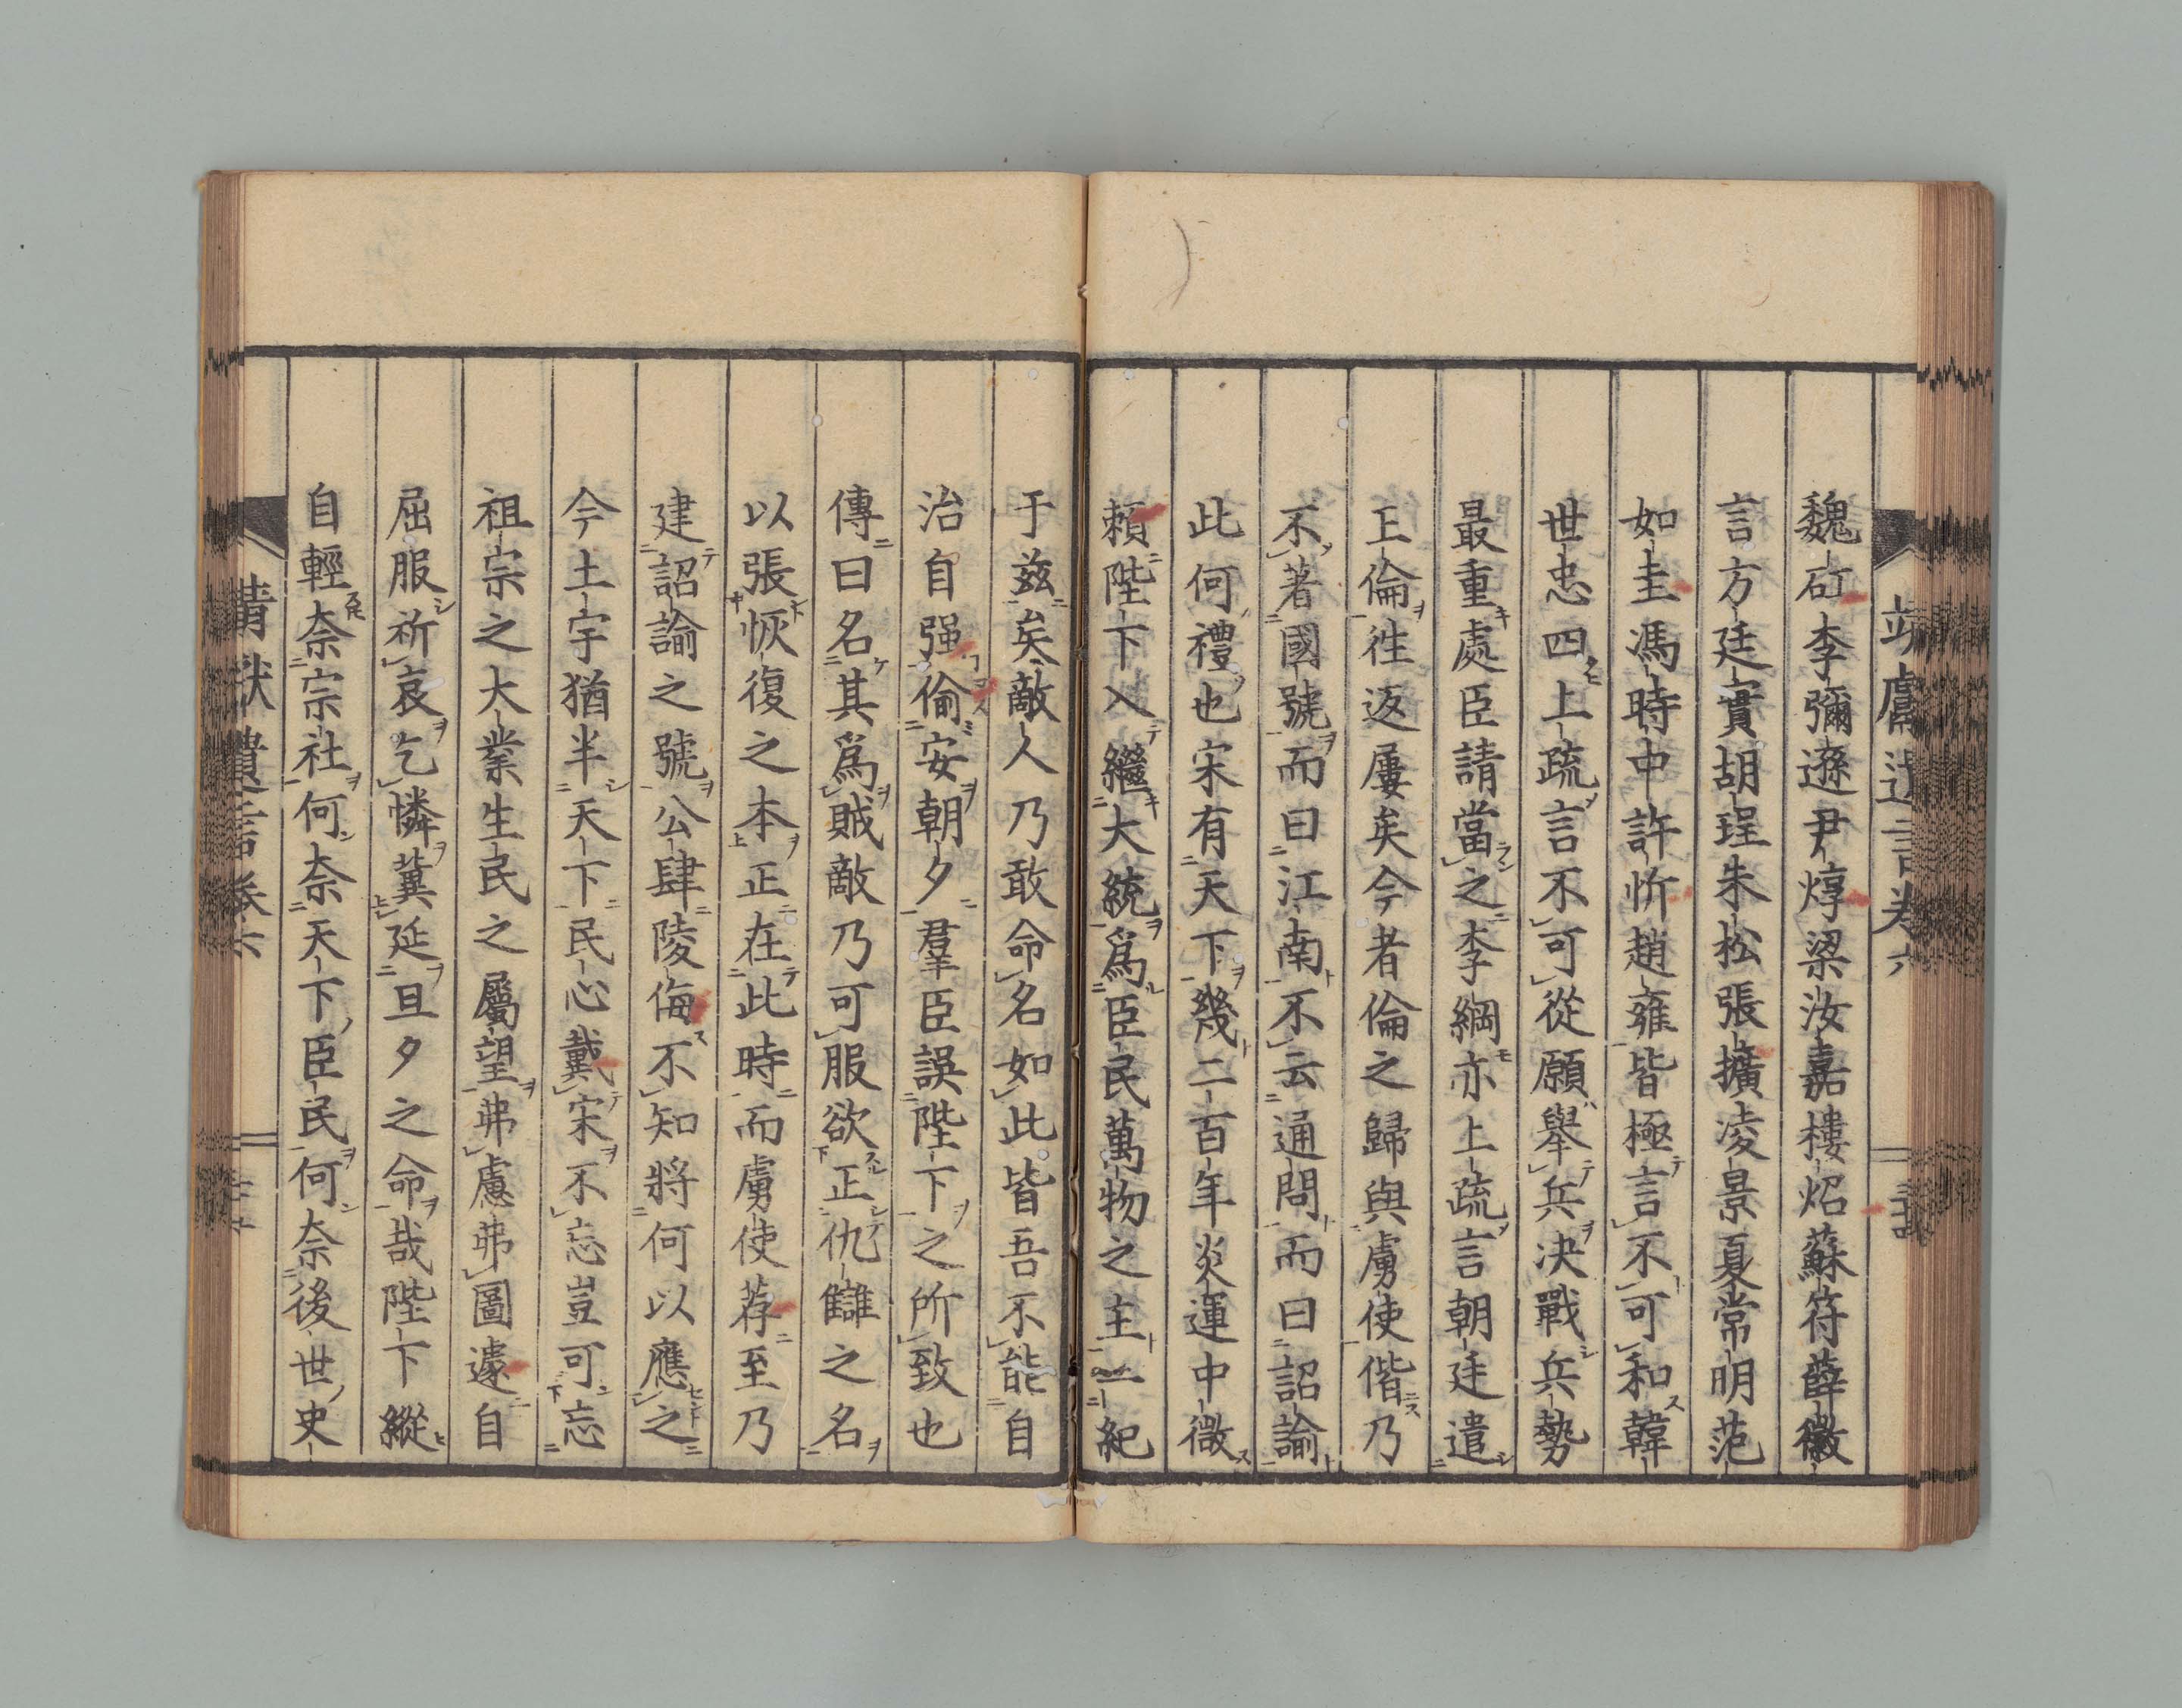 靖獻遺言卷六
魏矼李彌遜尹焞梁汝嘉樓炤蘇符薛徽
言方廷實胡珵朱松張擴凌景夏常明范
如圭馮時中許忻趙雍皆極言不可和韓
世忠四上疏言不可從願擧兵決戰兵勢
最重處臣請當之李綱亦上疏言朝廷遣
王倫往返屢矣今者倫之歸與虜使偕乃
不著國號而曰江南不云通問而曰詔諭
此何禮也宋有天下幾二百年炎運中微
賴陛下入繼大統爲臣民萬物之主一紀
于茲矣敵人乃敢命名如此皆吾不能自
治自强偷安朝夕羣臣誤陛下之所致也
傳曰名其爲賊敵乃可服欲正仇讎之名
以張恢復之本正在此時而虜使荐至乃
建詔諭之號公肆陵侮不知將何以應之
今土宇猶半天下民心戴宋不忘豈可忘
祖宗之大業生民之屬望弗慮弗圖遽自
屈服祈哀乞憐冀延旦夕之命哉陛下縱
自輕奈宗社何奈天下臣民何奈後世史
靖獻遺言卷六